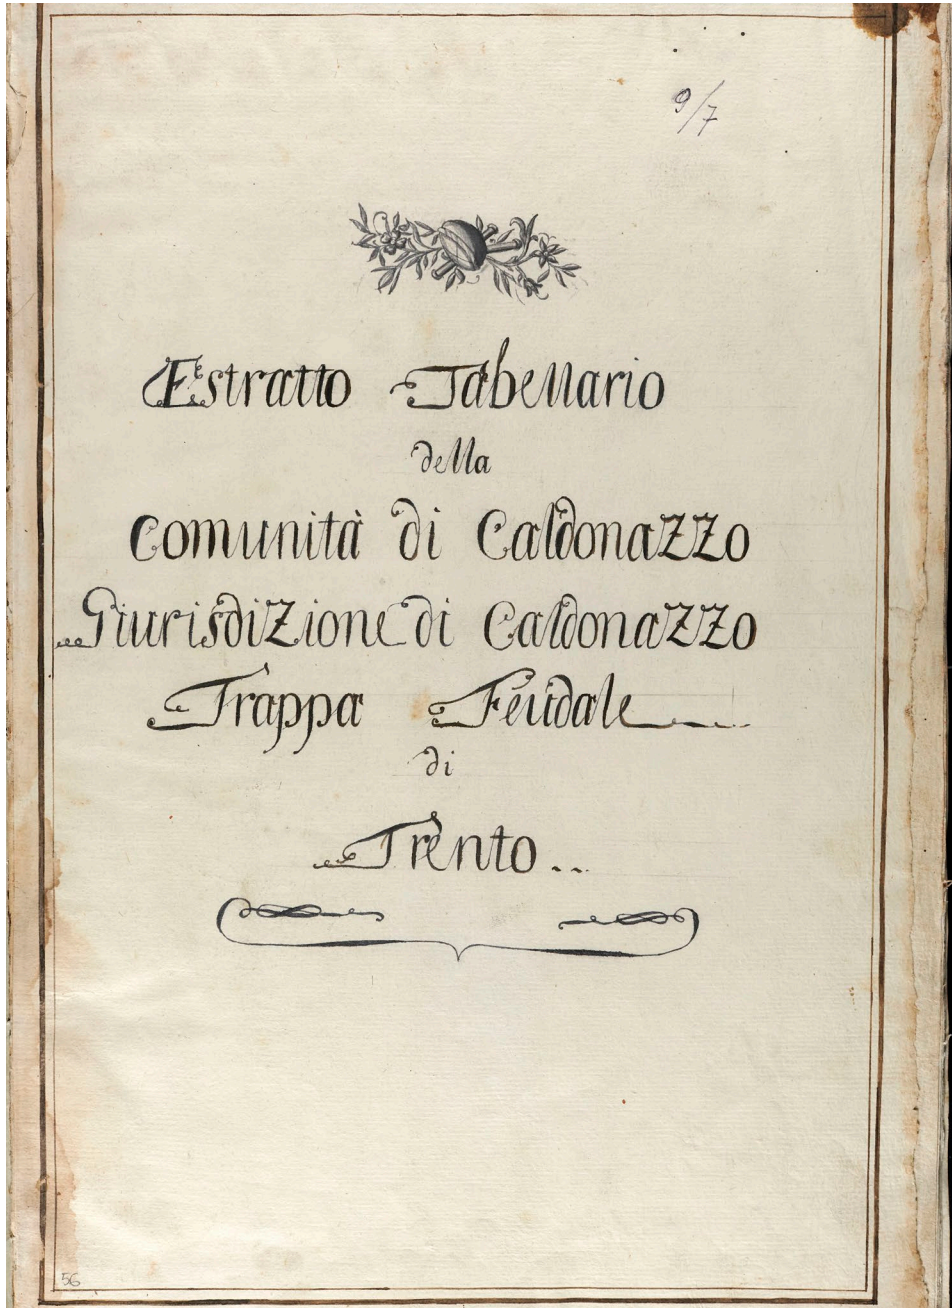 9/7
Estratto Tabellario
della
Comunità di Caldonazzo
Giurisdizione di Caldonazzo
Trappa Feudale
di
Trento..
56